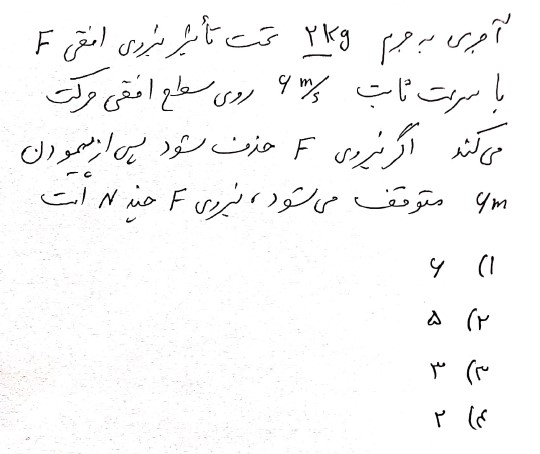 آجری به جرم ۲kg تحت تأثیر نیروی افقی F
با سرعت ثابت ۶ m/s روی سطح افقی حرکت
می‌کند اگر نیروی F حذف شود پس از پیمودن
۶m متوقف می‌شود، نیروی F چند N است
۱) ۶
۲) ۵
۳) ۳
۴) ۲